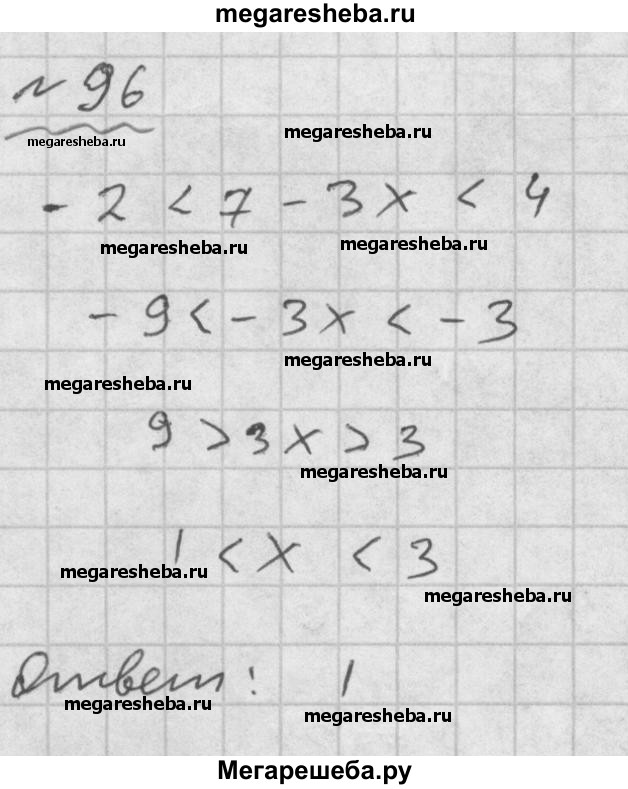 megaresheba.ru
№ 96
megaresheba.ru
megaresheba.ru
- 2 < 7 - 3x < 4
megaresheba.ru
megaresheba.ru
- 9 < - 3x < - 3
megaresheba.ru
megaresheba.ru
9 > 3x > 3
megaresheba.ru
1 < x < 3
megaresheba.ru
megaresheba.ru
Ответ: 1
megaresheba.ru
megaresheba.ru
Мегарешеба.ру